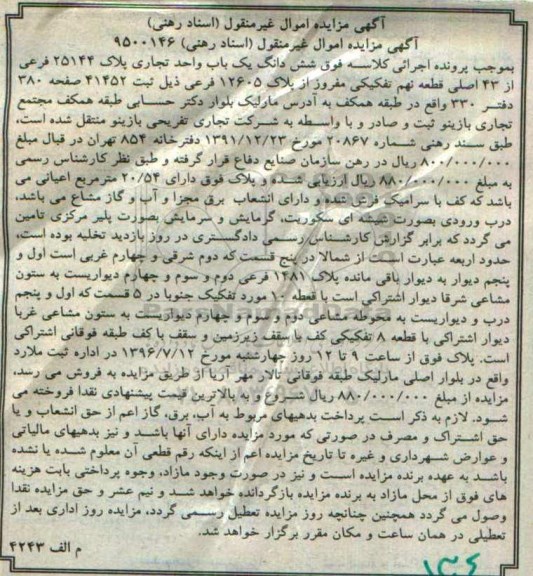 آگهی مزایده اموال غیرمنقول (اسناد رهنی)
آگهی مزایده اموال غیرمنقول (اسناد رهنی) ۹۵۰۰۱۴۶
بموجب پرونده اجرائی کلاسه فوق شش دانگ یک باب واحد تجاری پلاک ۲۵۱۴۴ فرعی
از ۴۳ اصلی قطعه نهم تفکیکی مفروز از پلاک ۱۲۶۰۵ فرعی ذیل ثبت ۴۱۴۵۲ صفحه ۳۸۰
دفتر ۳۳۰ واقع در طبقه همکف به آدرس مارلیک بلوار دکتر حسابی طبقه همکف مجتمع
تجاری بازینو ثبت و صادر و با واسطه به شرکت تجاری تفریحی بازینو منتقل شده است،
طبق سند رهنی شماره ۲۰۸۶۷ مورخ ۱۳۹۱/۱۲/۲۳ دفترخانه ۸۵۴ تهران در قبال مبلغ
۸۰۰/۰۰۰/۰۰۰ ریال در رهن سازمان صنایع دفاع قرار گرفته و طبق نظر کارشناس رسمی
به مبلغ ۸۸۰/۰۰۰/۰۰۰ ریال ارزیابی شده و پلاک فوق دارای ۲۰/۵۴ مترمربع اعیانی می
باشد که کف با سرامیک فرش شده و دارای انشعاب برق مجزا و آب و گاز مشاع می باشد،
درب ورودی بصورت شیشه ای سکوریت، گرمایش و سرمایش بصورت پلیر مرکزی تامین
می گردد که برابر گزارش کارشناس رسمی دادگستری در روز بازدید تخلیه بوده است،
حدود اربعه عبارت است از شمالا در پنج قسمت که دوم شرقی و چهارم غربی است اول و
پنجم دیوار به دیوار باقی مانده پلاک ۱۴۸۱ فرعی دوم و سوم و چهارم دیواریست به ستون
مشاعی شرقا دیوار اشتراکی است با قطعه ۱۰ مورد تفکیک جنوبا در ۵ قسمت که اول و پنجم
درب و دیواریست به محوطه مشاعی دوم و سوم و چهارم دیواریست به ستون مشاعی غربا
دیوار اشتراکی با قطعه ۸ تفکیکی کف با سقف زیرزمین و سقف با کف طبقه فوقانی اشتراکی
است. پلاک فوق از ساعت ۹ تا ۱۲ روز چهارشنبه مورخ ۱۳۹۶/۷/۱۲ در اداره ثبت ملارد
واقع در بلوار اصلی مارلیک طبقه فوقانی تالار مهر آریا از طریق مزایده به فروش می رسد،
مزایده از مبلغ ۸۸۰/۰۰۰/۰۰۰ ریال شروع و به بالاترین قیمت پیشنهادی نقدا فروخته می
شود. لازم به ذکر است پرداخت بدهیهای مربوط به آب، برق، گاز اعم از حق انشعاب و یا
حق اشتراک و مصرف در صورتی که مورد مزایده دارای آنها باشد و نیز بدهیهای مالیاتی
و عوارض شهرداری و غیره تا تاریخ مزایده اعم از اینکه رقم قطعی آن معلوم شده یا نشده
باشد به عهده برنده مزایده است و نیز در صورت وجود مازاد، وجوه پرداختی بابت هزینه
های فوق از محل مازاد به برنده مزایده بازگردانده خواهد شد و نیم عشر و حق مزایده نقدا
وصول می گردد همچنین چنانچه روز مزایده تعطیل رسمی گردد، مزایده روز اداری بعد از
تعطیلی در همان ساعت و مکان مقرر برگزار خواهد شد.
م الف ۴۲۴۳
۱۳۶